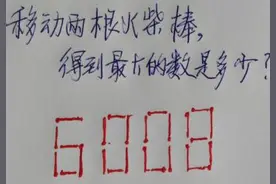 移动两根火柴棒,
得到最大的数是多少?
6008